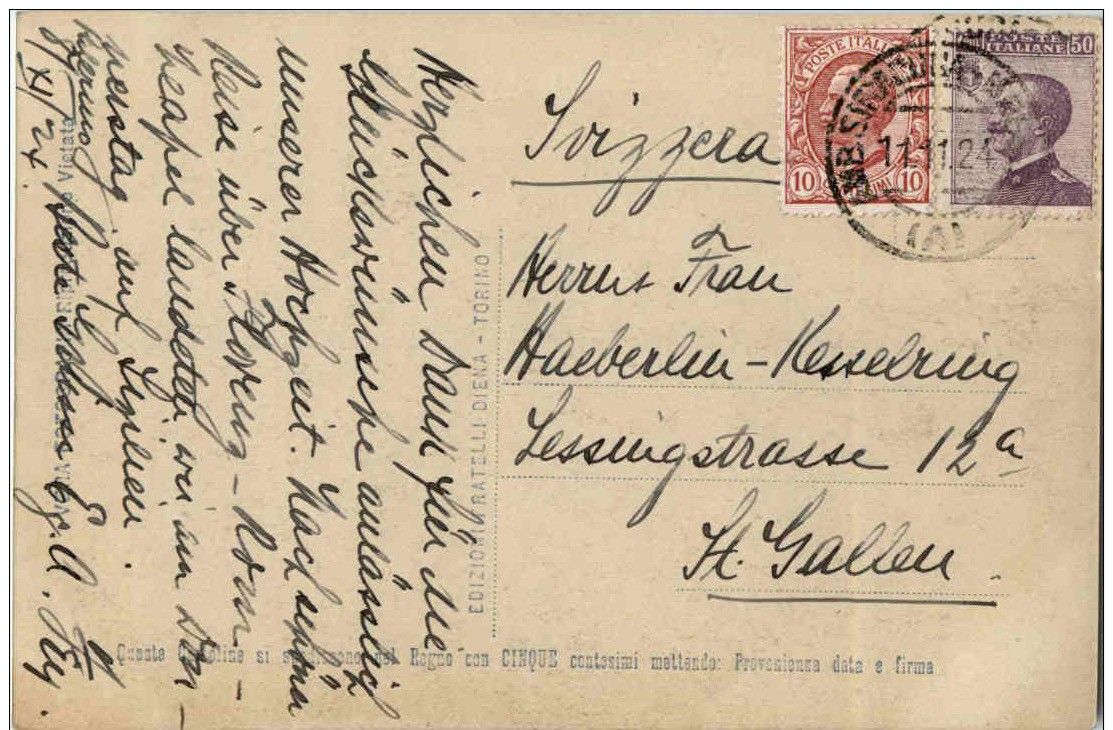 Herzlichen Dank für die
Glückwünsche anlässlich
unserer Hochzeit. Nach schöner
Reise über Florenz - Rom -
Neapel landeten wir am Don-
nerstag auf Sizilien.
Beste Grüsse
XI/24
Svizzera
Herrn u Frau
Haeberlin-Kesselring
Lessingstrasse 12a
St. Gallen.
POSTE ITALIANE
10 CENTESIMI 10
POSTE ITALIANE 50
11.11.24
EDIZIONI FRATELLI DIENA - TORINO
Vietata
Queste Cartoline si spediscono nel Regno con CINQUE centesimi mettendo: Provenienza data e firma